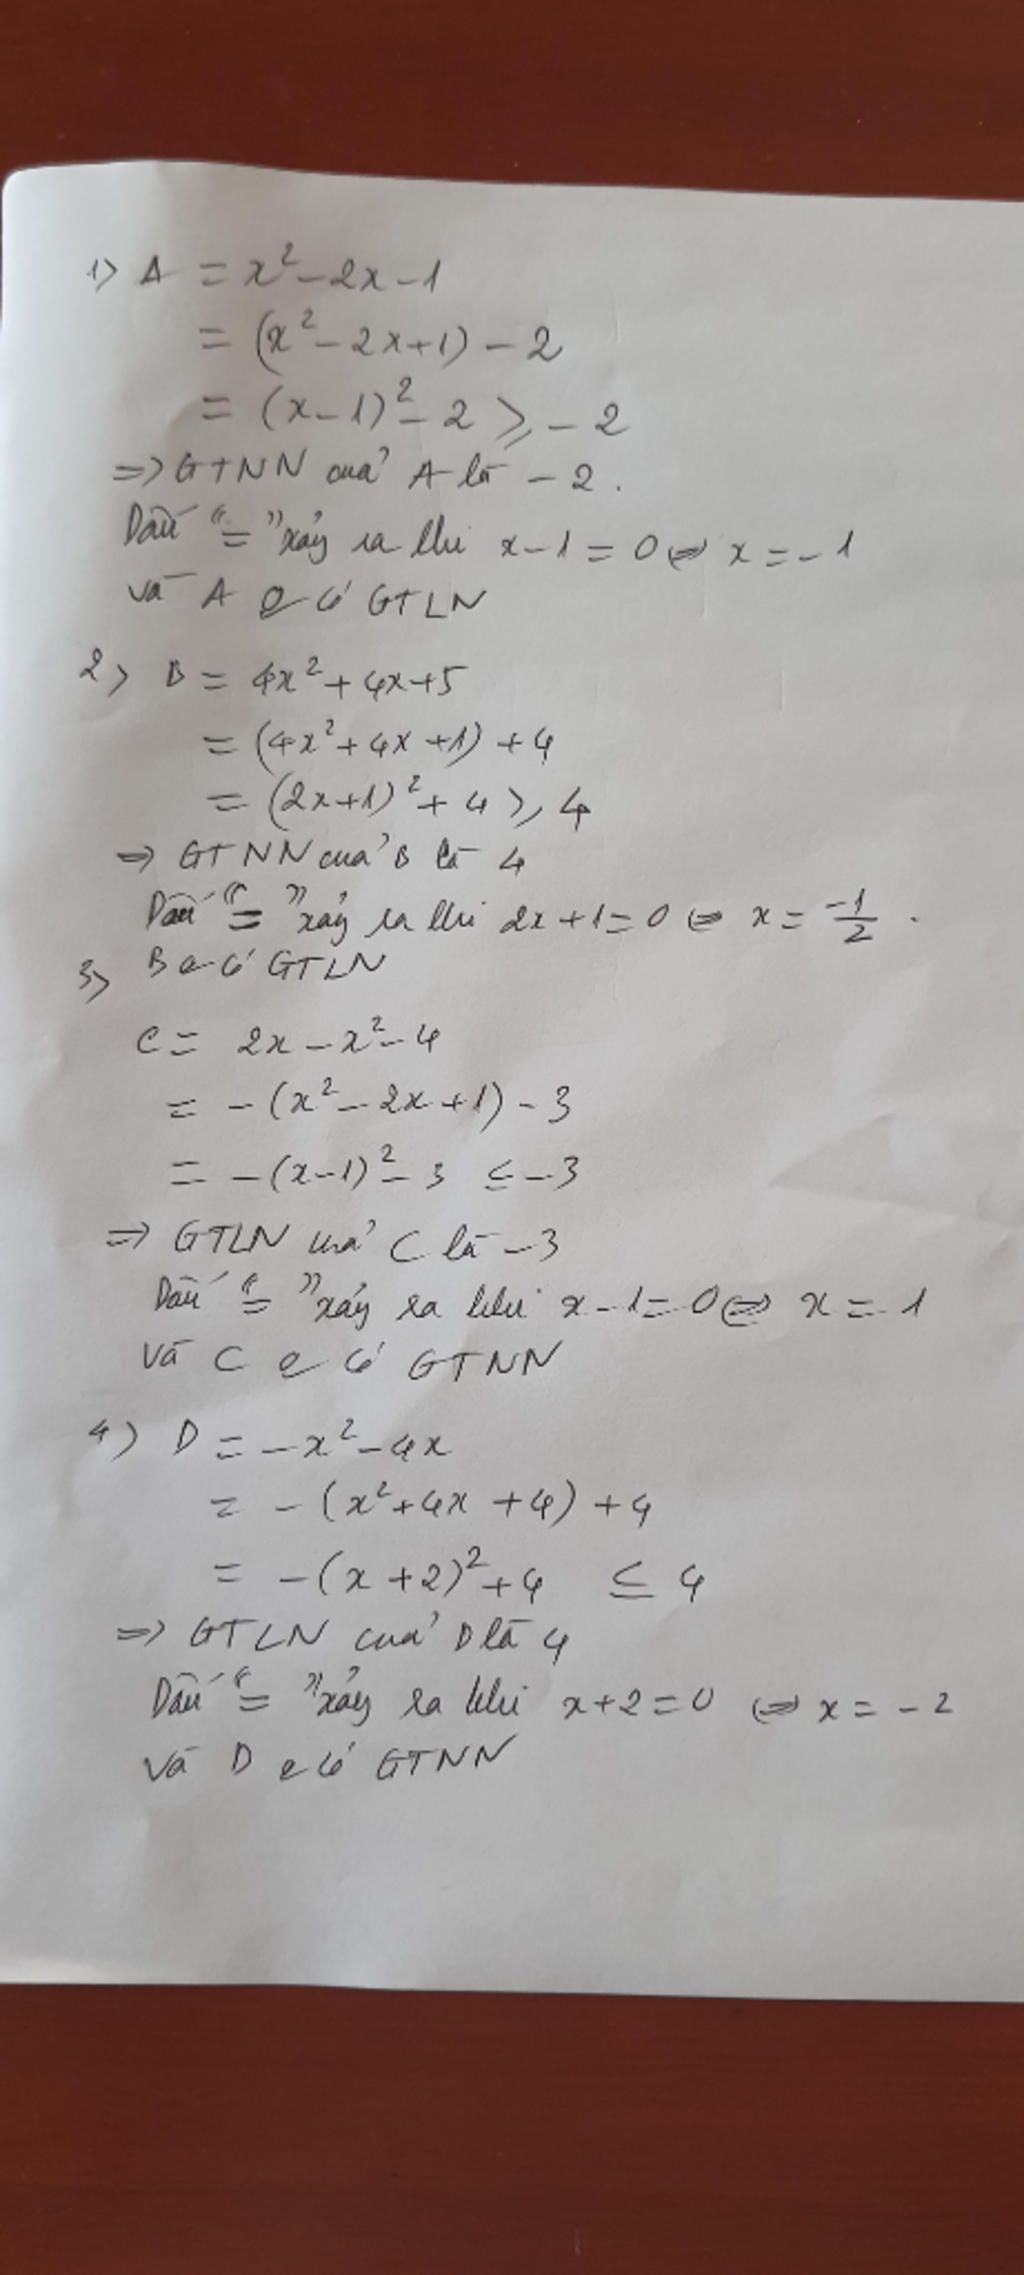 1) A = x² - 2x - 1
= (x² - 2x + 1) - 2
= (x - 1)² - 2 ⩾ - 2
=> GTNN của A là - 2.
Dấu "=" xảy ra khi x - 1 = 0 <=> x = - 1
và A k có GTLN
2) B = 4x² + 4x + 5
= (4x² + 4x + 1) + 4
= (2x + 1)² + 4 ⩾ 4
=> GTNN của B là 4
Dấu "=" xảy ra khi 2x + 1 = 0 <=> x = -1/2 .
B k có GTLN
3)
C = 2x - x² - 4
= - (x² - 2x + 1) - 3
= - (x - 1)² - 3 ≤ - 3
=> GTLN của C là - 3
Dấu "=" xảy ra khi x - 1 = 0 <=> x = 1
và C k có GTNN
4) D = - x² - 4x
= - (x² + 4x + 4) + 4
= - (x + 2)² + 4 ≤ 4
=> GTLN của D là 4
Dấu "=" xảy ra khi x + 2 = 0 <=> x = - 2
và D k có GTNN